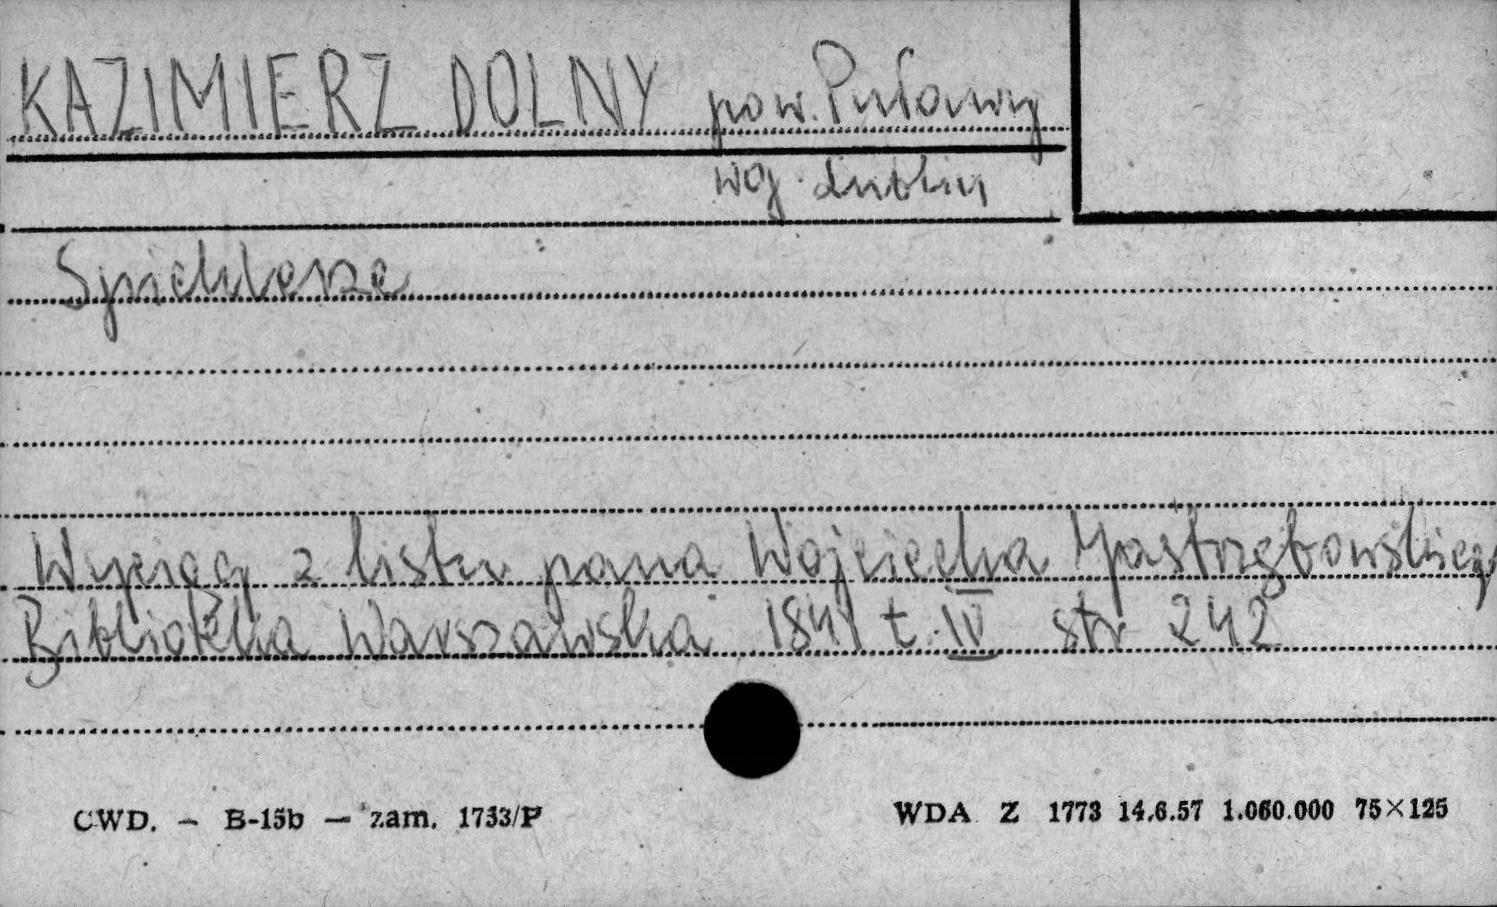 KAZIMIERZ DOLNY pow. Puławy
woj. Lublin
Spichlerze
Wyciąg z listu pana Wojciecha Jastrzębowskiego
Biblioteka Warszawska 1841 t. IV str 242
CWD. — B-15b — zam. 1733/P
WDA Z 1773 14.6.57 1.060.000 75×125